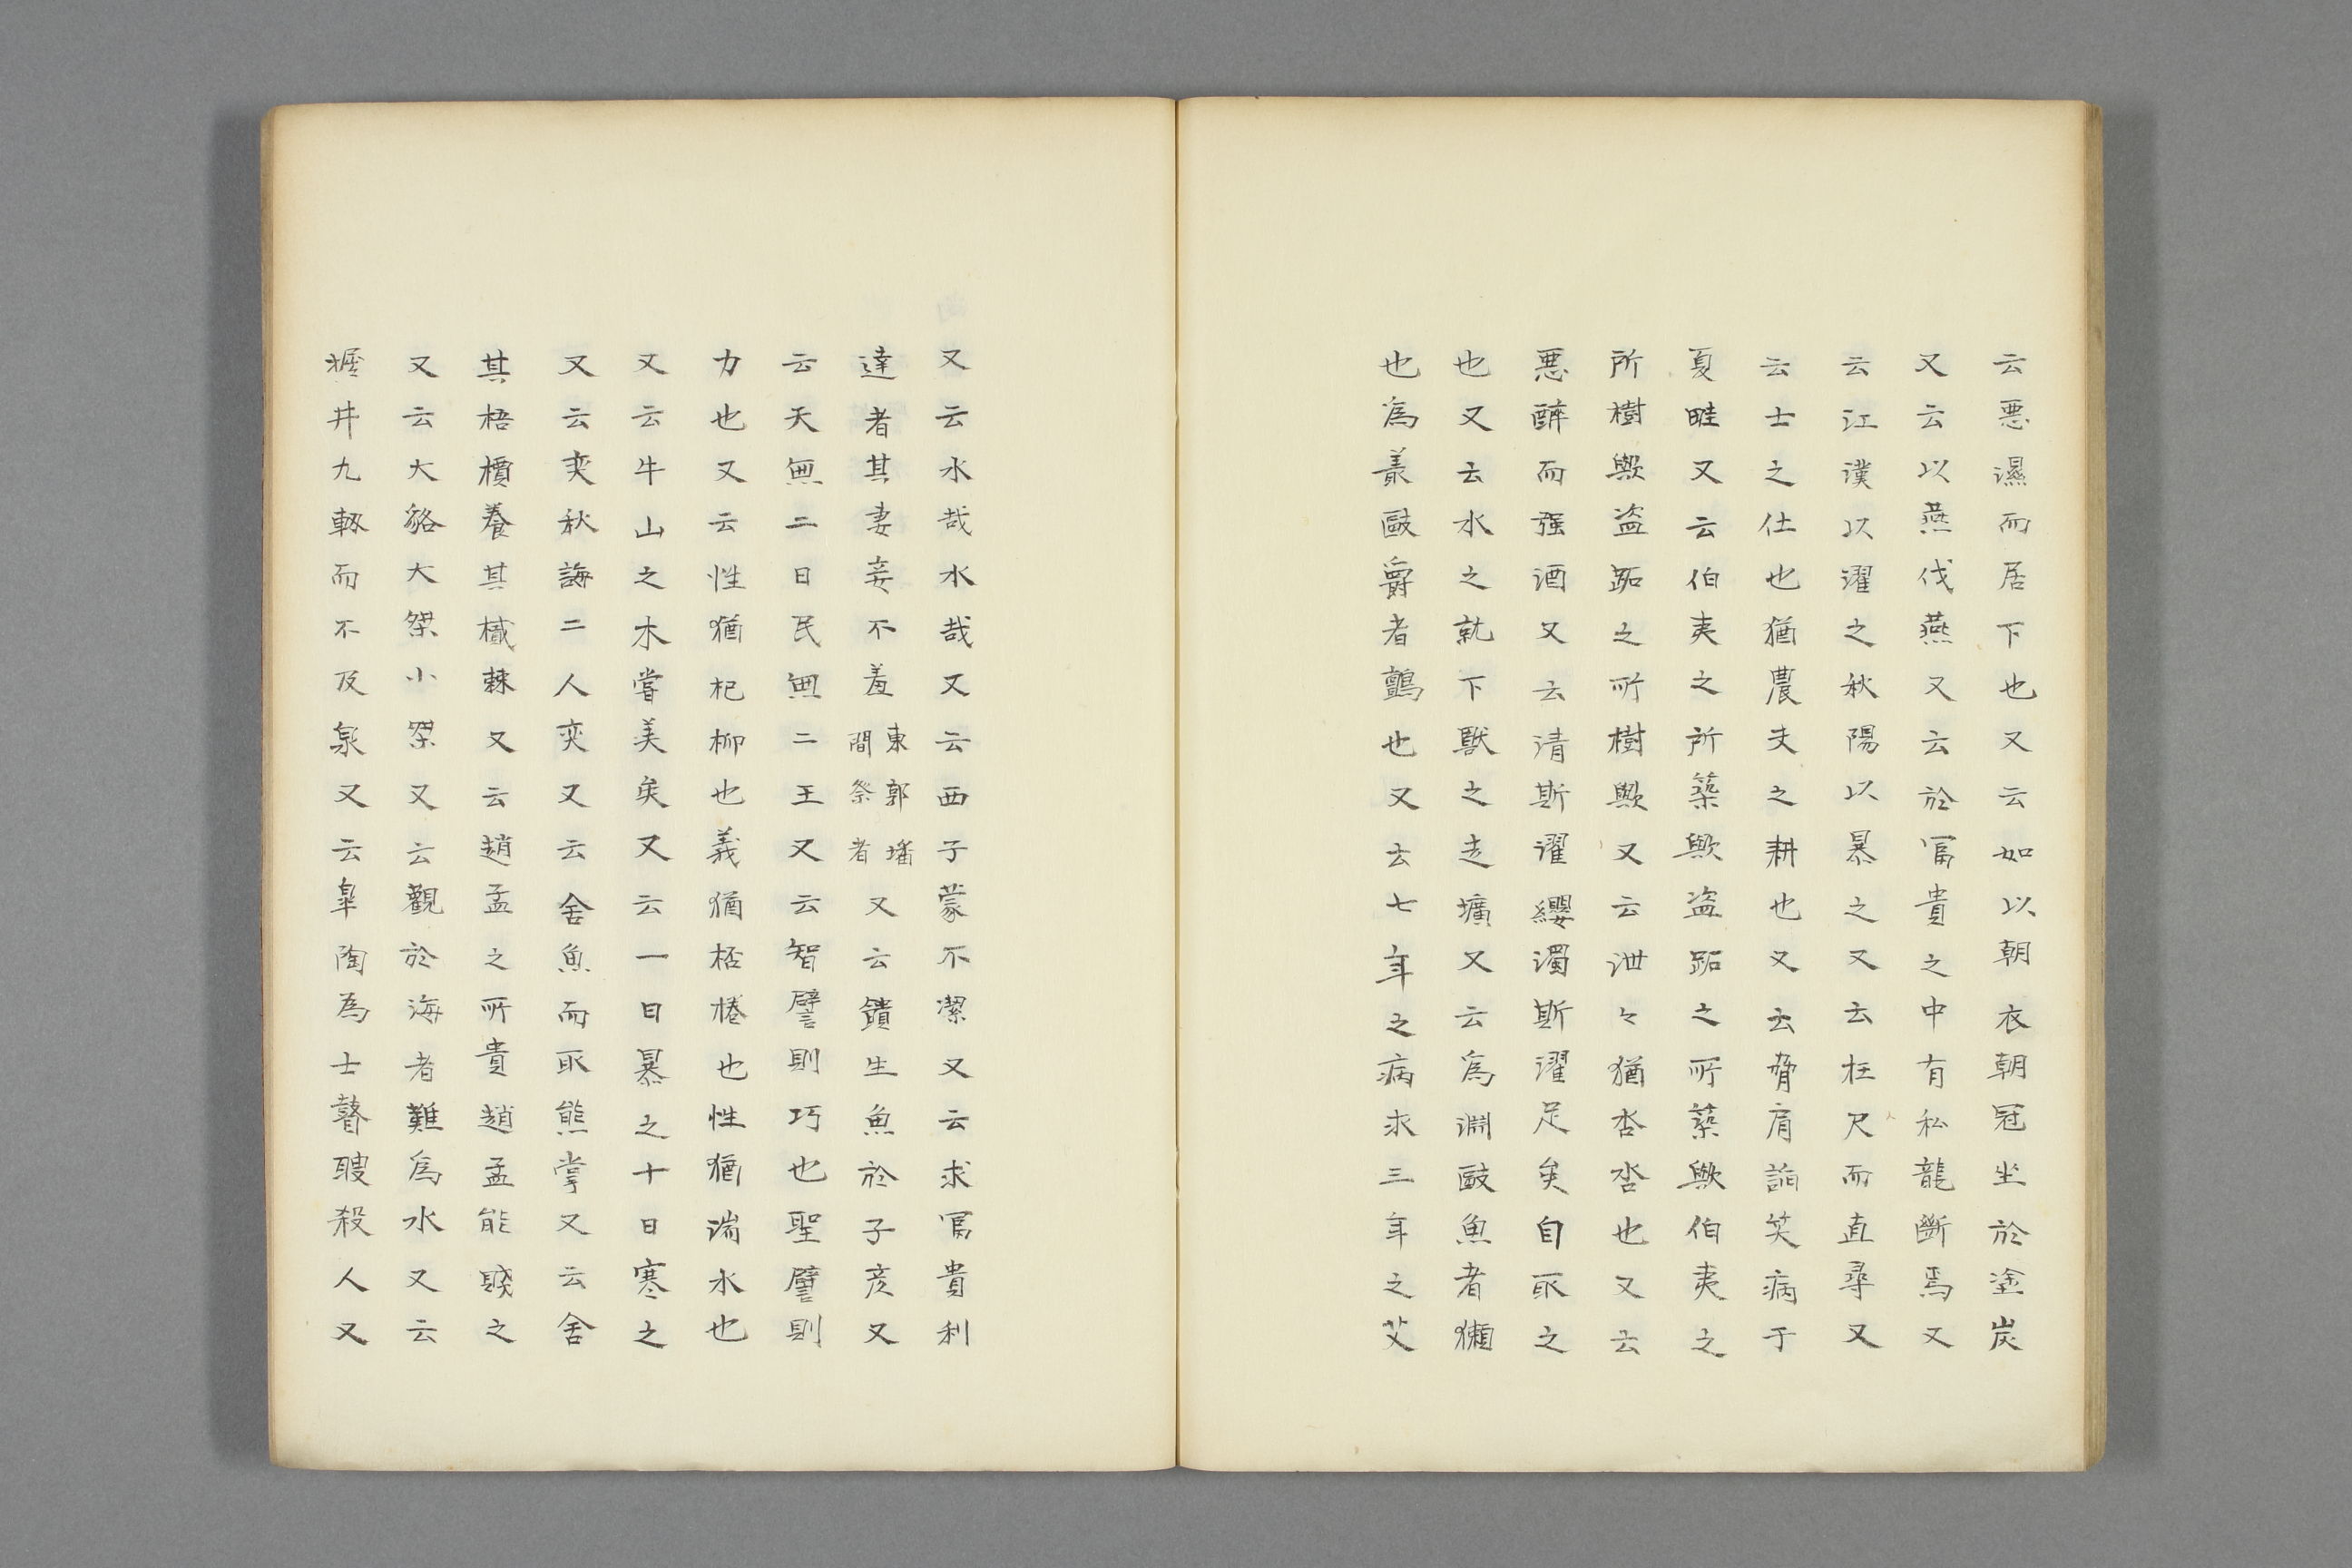 云悪濕而居下也又云如以朝衣朝冠坐於塗炭
又云以燕伐燕又云於冨貴之中有私龍斷焉又
云江漢以濯之秋陽以暴之又云枉尺而直尋又
云士之仕也猶農夫之耕也又云脅肩諂笑病于
夏畦又云伯夷之所築歟盗跖之所築歟伯夷之
所樹歟盗跖之所樹歟又云泄々猶沓沓也又云
悪醉而强酒又云清斯濯纓濁斯濯足矣自取之
也又云水之就下獸之走壙又云爲淵敺魚者獺
也爲叢敺爵者鸇也又云七年之病求三年之艾
又云水哉水哉又云西子蒙不潔又云求冨貴利
達者其妻妾不羞東郭墦間祭者又云饋生魚於子彦又
云天無二日民無二王又云智譬則巧也聖譬則
力也又云性猶杞柳也義猶桮棬也性猶湍水也
又云牛山之木嘗美矣又云一日暴之十日寒之
又云奕秋誨二人奕又云舍魚而取熊掌又云舍
其梧檟養其樲棘又云趙孟之所貴趙孟能賤之
又云大貉大桀小桀又云觀於海者難爲水又云
掘井九軔而不及泉又云皐陶為士瞽瞍殺人又